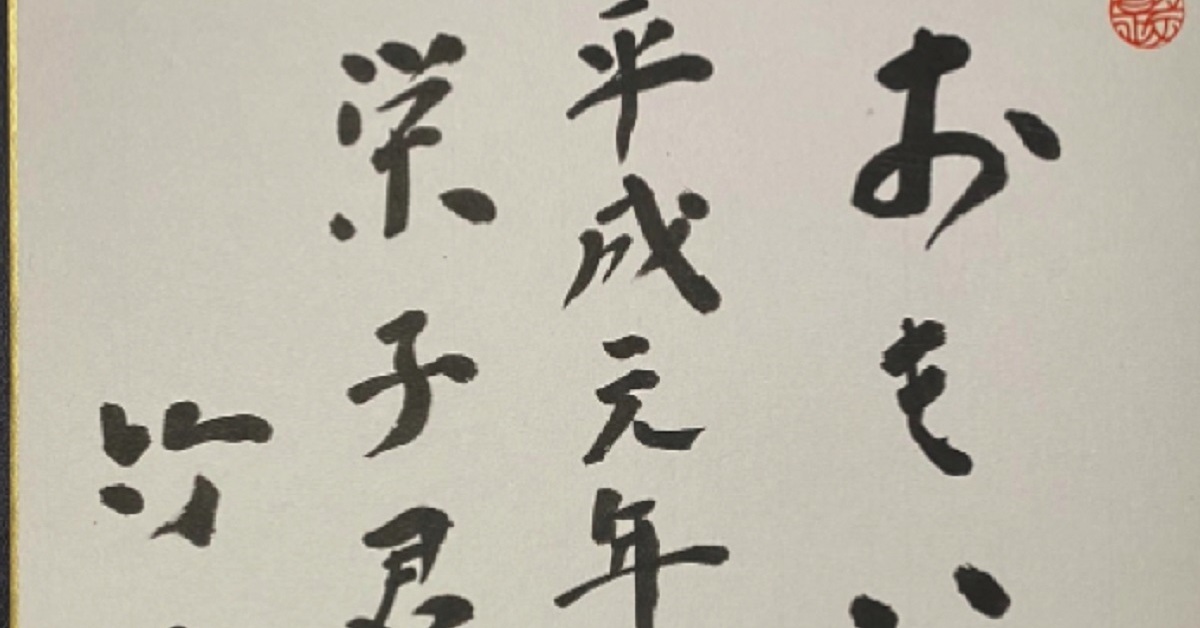 おもい
平成元年
栄子君